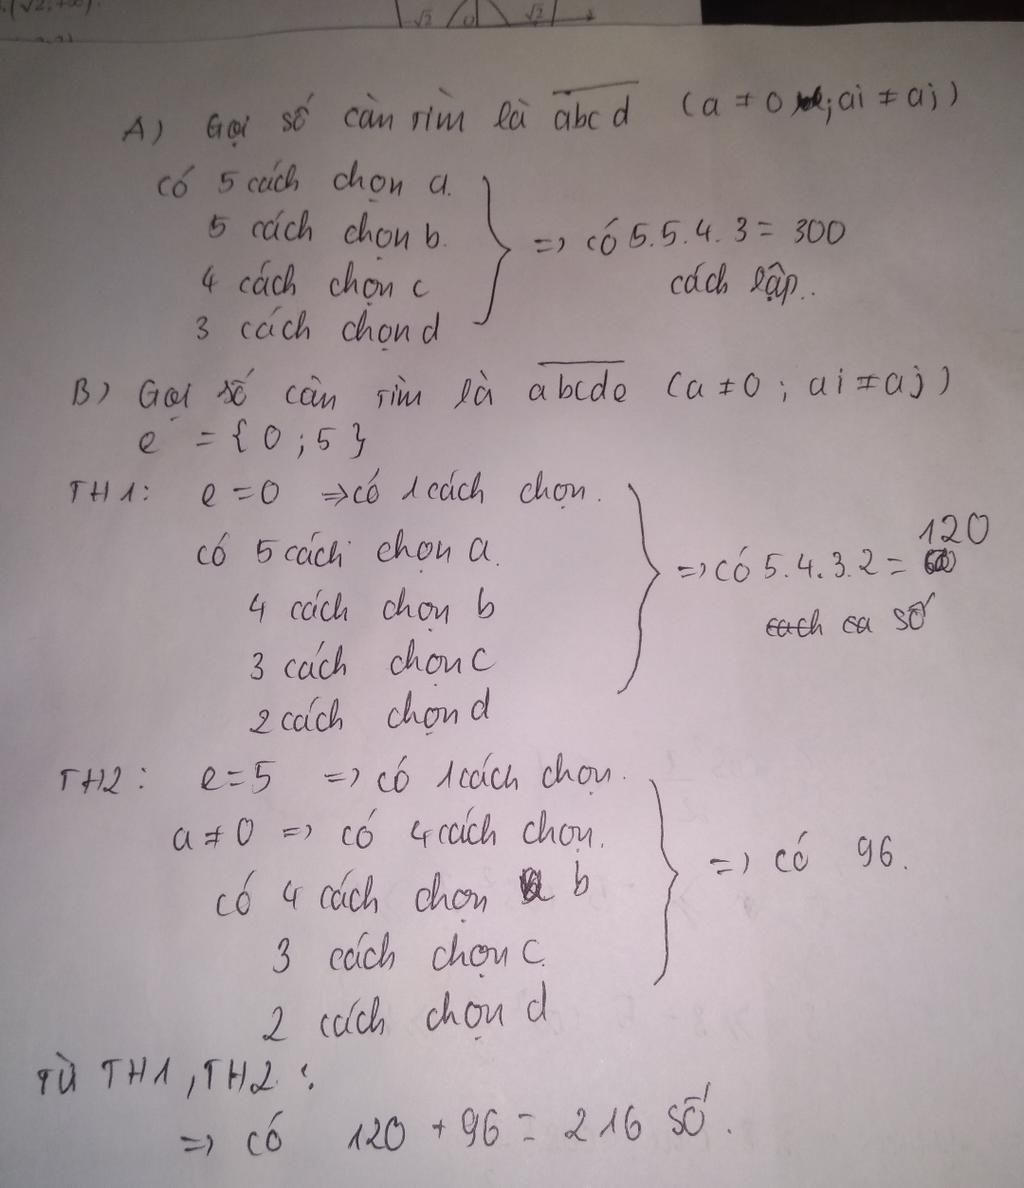 (√2; +∞).
√2 0 √2
A) Gọi số cần tìm là abcd (a ≠ 0; ai ≠ aj)
có 5 cách chọn a.
5 cách chọn b.
4 cách chọn c
3 cách chọn d
=> có 5.5.4.3 = 300
cách lập..
B) Gọi số cần tìm là abcde (a ≠ 0; ai ≠ aj)
e = {0; 5}
TH1: e = 0 => có 1 cách chọn.
có 5 cách chọn a.
4 cách chọn b
3 cách chọn c
2 cách chọn d
=> có 5.4.3.2 = 120
cách ca số
TH2: e = 5 => có 1 cách chọn.
a ≠ 0 => có 4 cách chọn.
có 4 cách chọn b
3 cách chọn c.
2 cách chọn d
=> có 96.
Từ TH1, TH2:
=> có 120 + 96 = 216 số.